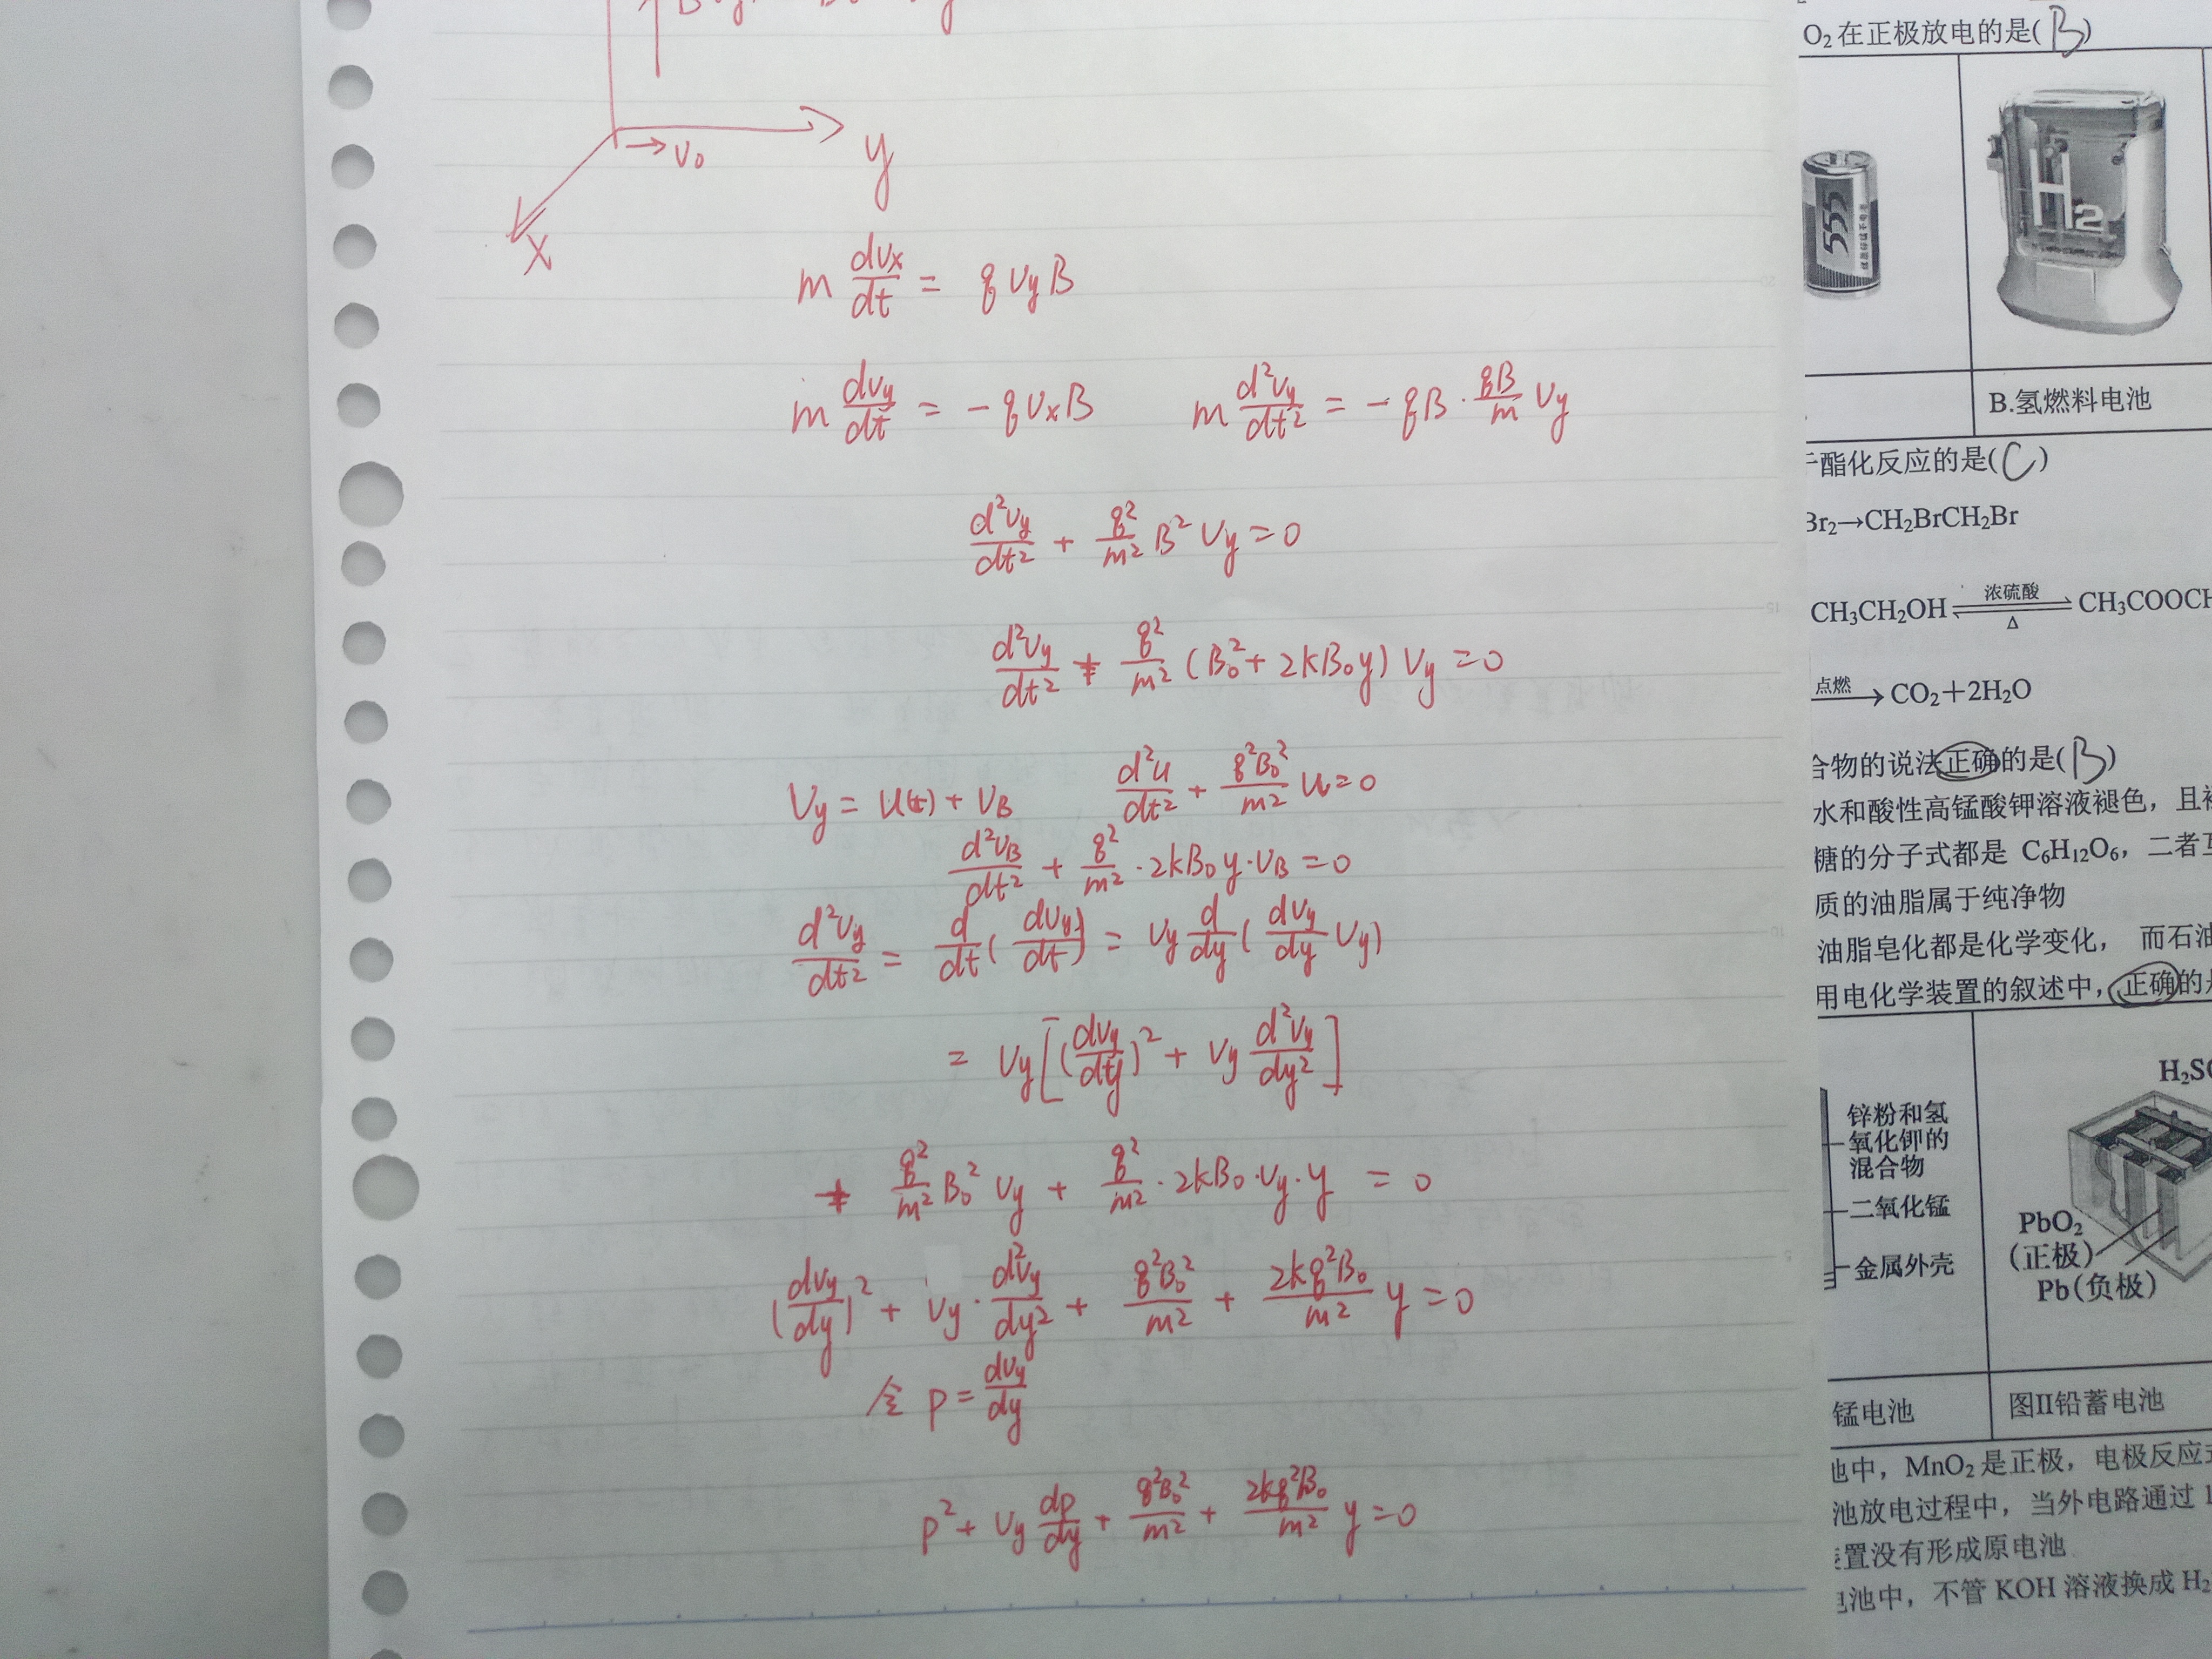 → v₀
y
x
m dvx/dt = q vy B
m dvy/dt = - q vx B    m d²vy/dt² = - qB · qB/m vy
d²vy/dt² + q²/m² B² vy = 0
d²vy/dt² + q²/m² (B₀² + 2kB₀y) vy = 0
vy = u(t) + vB    d²u/dt² + q²B₀²/m² u = 0
d²vB/dt² + q²/m² · 2kB₀y · vB = 0
d²vy/dt² = d/dt (dvy/dt) = vy d/dy (dvy/dy vy)
= vy [(dvy/dy)² + vy d²vy/dy²]
+ q²/m² B₀² vy + q²/m² · 2kB₀ · vy · y = 0
(dvy/dy)² + vy · d²vy/dy² + q²B₀²/m² + 2kq²B₀/m² y = 0
令 p = dvy/dy
p² + vy dp/dy + q²B₀²/m² + 2kq²B₀/m² y = 0
O₂在正极放电的是(B)
555
H₂
B.氢燃料电池
酯化反应的是(C)
Br₂→CH₂BrCH₂Br
CH₃CH₂OH ⇌ CH₃COOCH
浓硫酸
△
点燃 → CO₂+2H₂O
合物的说法正确的是(B)
水和酸性高锰酸钾溶液褪色，且
糖的分子式都是 C₆H₁₂O₆，二者互
质的油脂属于纯净物
油脂皂化都是化学变化，而石油
用电化学装置的叙述中，正确的是
锌粉和氢
氧化钾的
混合物
二氧化锰
金属外壳
H₂SO
PbO₂
(正极)
Pb(负极)
锰电池
图Ⅱ铅蓄电池
池中，MnO₂是正极，电极反应式
池放电过程中，当外电路通过 1
装置没有形成原电池
电池中，不管 KOH 溶液换成 H₂